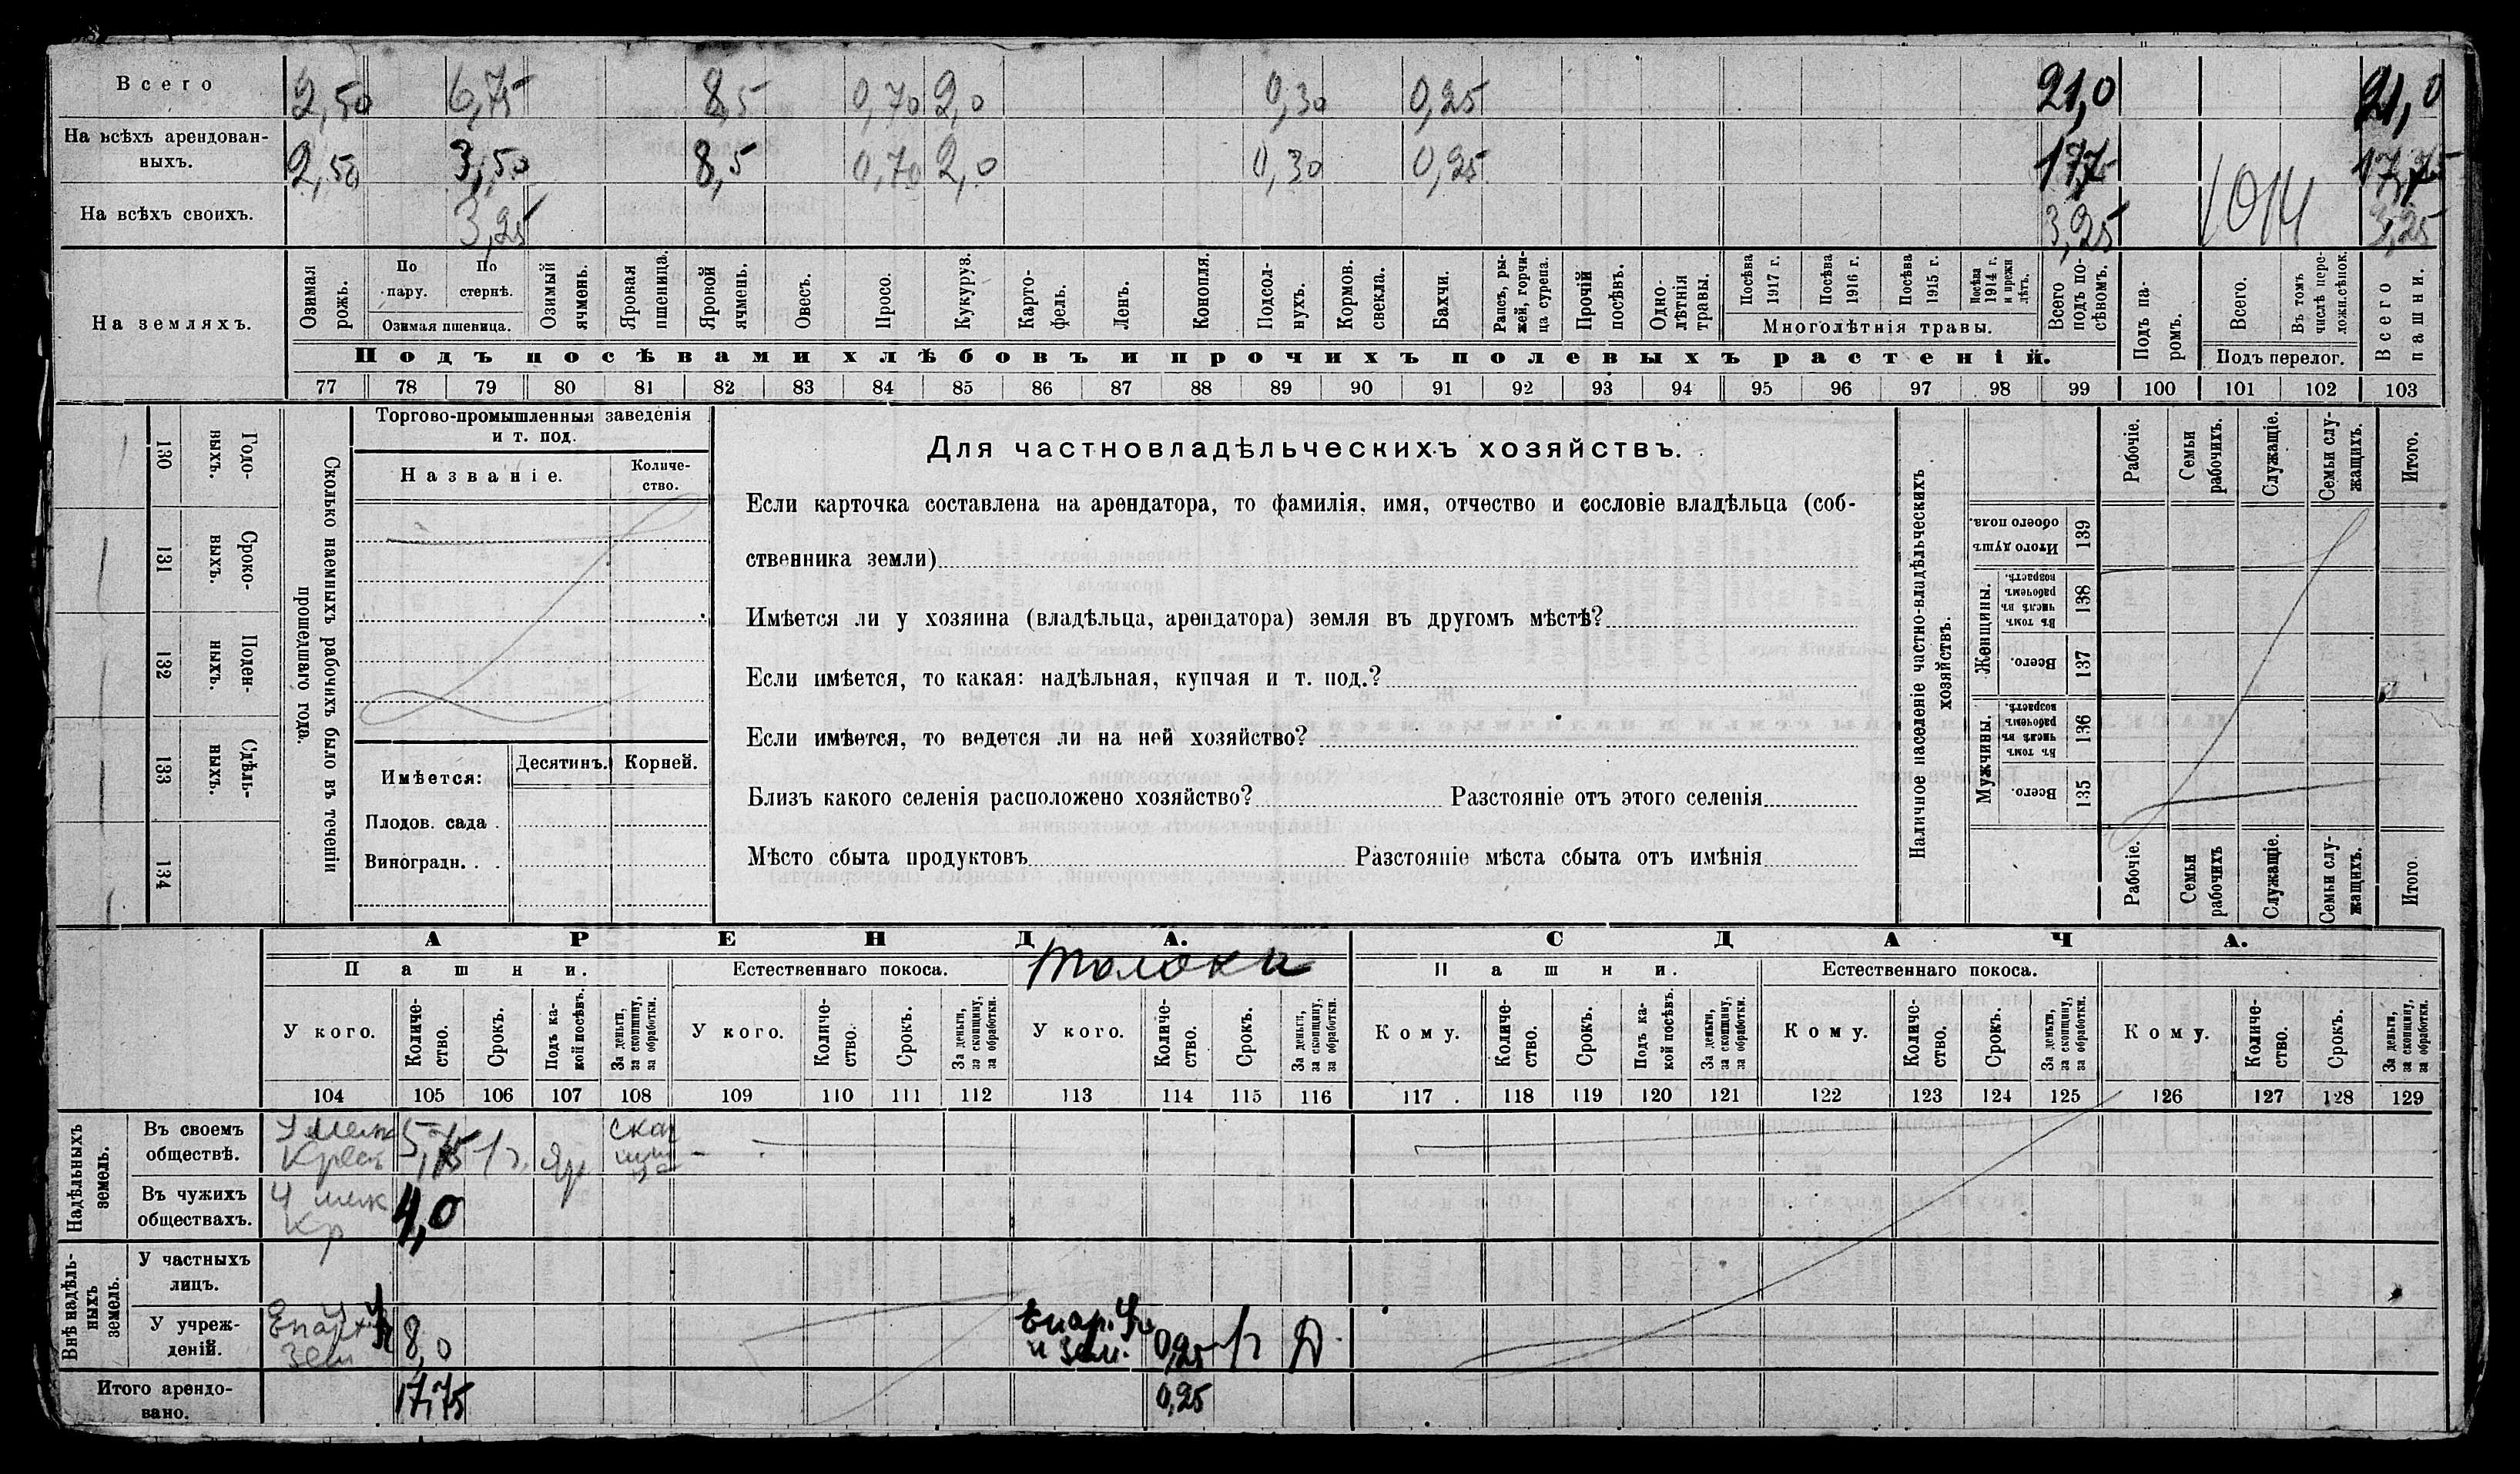 Всего 2,50 6,75 8,5 0,70 2,0 0,30 0,25 21,0 21,0
На всѣхъ арендован-
ныхъ. 2,50 3,50 8,5 0,70 2,0 0,30 0,25 17,75 17,75
На всѣхъ своихъ. 3,25 3,25 3,25
На земляхъ.
Озимая рожь.
По пару.
По стернѣ.
Озимая пшеница.
Озимый ячмень.
Яровая пшеница.
Яровой ячмень.
Овесъ.
Просо.
Кукуруз.
Карто-
фель.
Ленъ.
Конопля.
Подсол-
нухъ.
Кормов. свекла.
Бахчи.
Рапсъ, ры-
жей, горчи-
ца сурепа.
Прочій посѣвъ.
Одно-
лѣтнія травы.
Посѣва 1917 г.
Посѣва 1916 г.
Посѣва 1915 г.
Посѣва 1914 г. и прежн лѣтъ.
Многолѣтнія травы.
Всего подъ по-
сѣвомъ.
Подъ па-
ромъ.
Всего.
Въ томъ числѣ пере-
ложн.сѣнок.
Подъ перелог.
Всего пашни.
Подъ посѣвами хлѣбовъ и прочихъ полевыхъ растеній.
77 78 79 80 81 82 83 84 85 86 87 88 89 90 91 92 93 94 95 96 97 98 99 100 101 102 103
130 Годо-
выхъ.
131 Сроко-
выхъ.
132 Поден-
ныхъ.
133 Сдѣль-
ныхъ.
134
Сколько наемныхъ рабочихъ было въ теченіи
прошедшаго года.
Торгово-промышленныя заведенія
и т. под.
Названіе.
Количе-
ство.
Имѣется:
Десятинъ. Корней.
Плодов. сада .
Виноградн. . .
Для частновладѣльческихъ хозяйствъ.
Если карточка составлена на арендатора, то фамилія, имя, отчество и сословіе владѣльца (соб-
ственника земли)
Имѣется ли у хозяина (владѣльца, арендатора) земля въ другомъ мѣстѣ?
Если имѣется, то какая: надѣльная, купчая и т. под.?
Если имѣется, то ведется ли на ней хозяйство?
Близъ какого селенія расположено хозяйство? Разстояніе отъ этого селенія
Мѣсто сбыта продуктовъ Разстояніе мѣста сбыта отъ имѣнія
Наличное населеніе частно-владѣльческихъ
хозяйствъ.
Рабочіе.
Семьи рабочихъ.
Служащіе.
Семьи слу-
жащихъ.
Итого.
Итого душъ обоего пола. 139
Женщины.
Въ томъ числѣ въ рабочемъ возрастѣ. 138
Всего. 137
Мужчины.
Въ томъ числѣ въ рабочемъ возрастѣ. 136
Всего. 135
Рабочіе.
Семьи рабочихъ
Служащіе.
Семьи слу-
жащихъ.
Итого.
АРЕНДА. СДАЧА.
Пашни. Естественнаго покоса. толока Пашни. Естественнаго покоса.
У кого. Количе-
ство. Срокъ. Подъ ка-
кой посѣвъ. За деньги,
за скопщину,
за обработки.
У кого. Количе-
ство. Срокъ. За деньги,
за скопщину,
за обработки.
У кого. Количе-
ство. Срокъ. За деньги,
за скопщину,
за обработки.
Кому. Количе-
ство. Срокъ. Подъ ка-
кой посѣвъ. За деньги,
за скопщину,
за обработки.
Кому. Количе-
ство. Срокъ. За деньги,
за скопщину,
за обработки.
Кому. Количе-
ство. Срокъ. За деньги,
за скопщину,
за обработки.
104 105 106 107 108 109 110 111 112 113 114 115 116 117 . 118 119 120 121 122 123 124 125 126 127 128 129
Надѣльныхъ земель.
Въ своемъ
обществѣ. 5,75 1 г.
Въ чужихъ
обществахъ. Кр 4,0
Внѣ надѣль-
ныхъ земель.
У частныхъ
лицъ.
У учреж-
деній. Зем 8,0 и Зем. 0,25 1 г Д
Итого арендо-
вано. 17,75 0,25